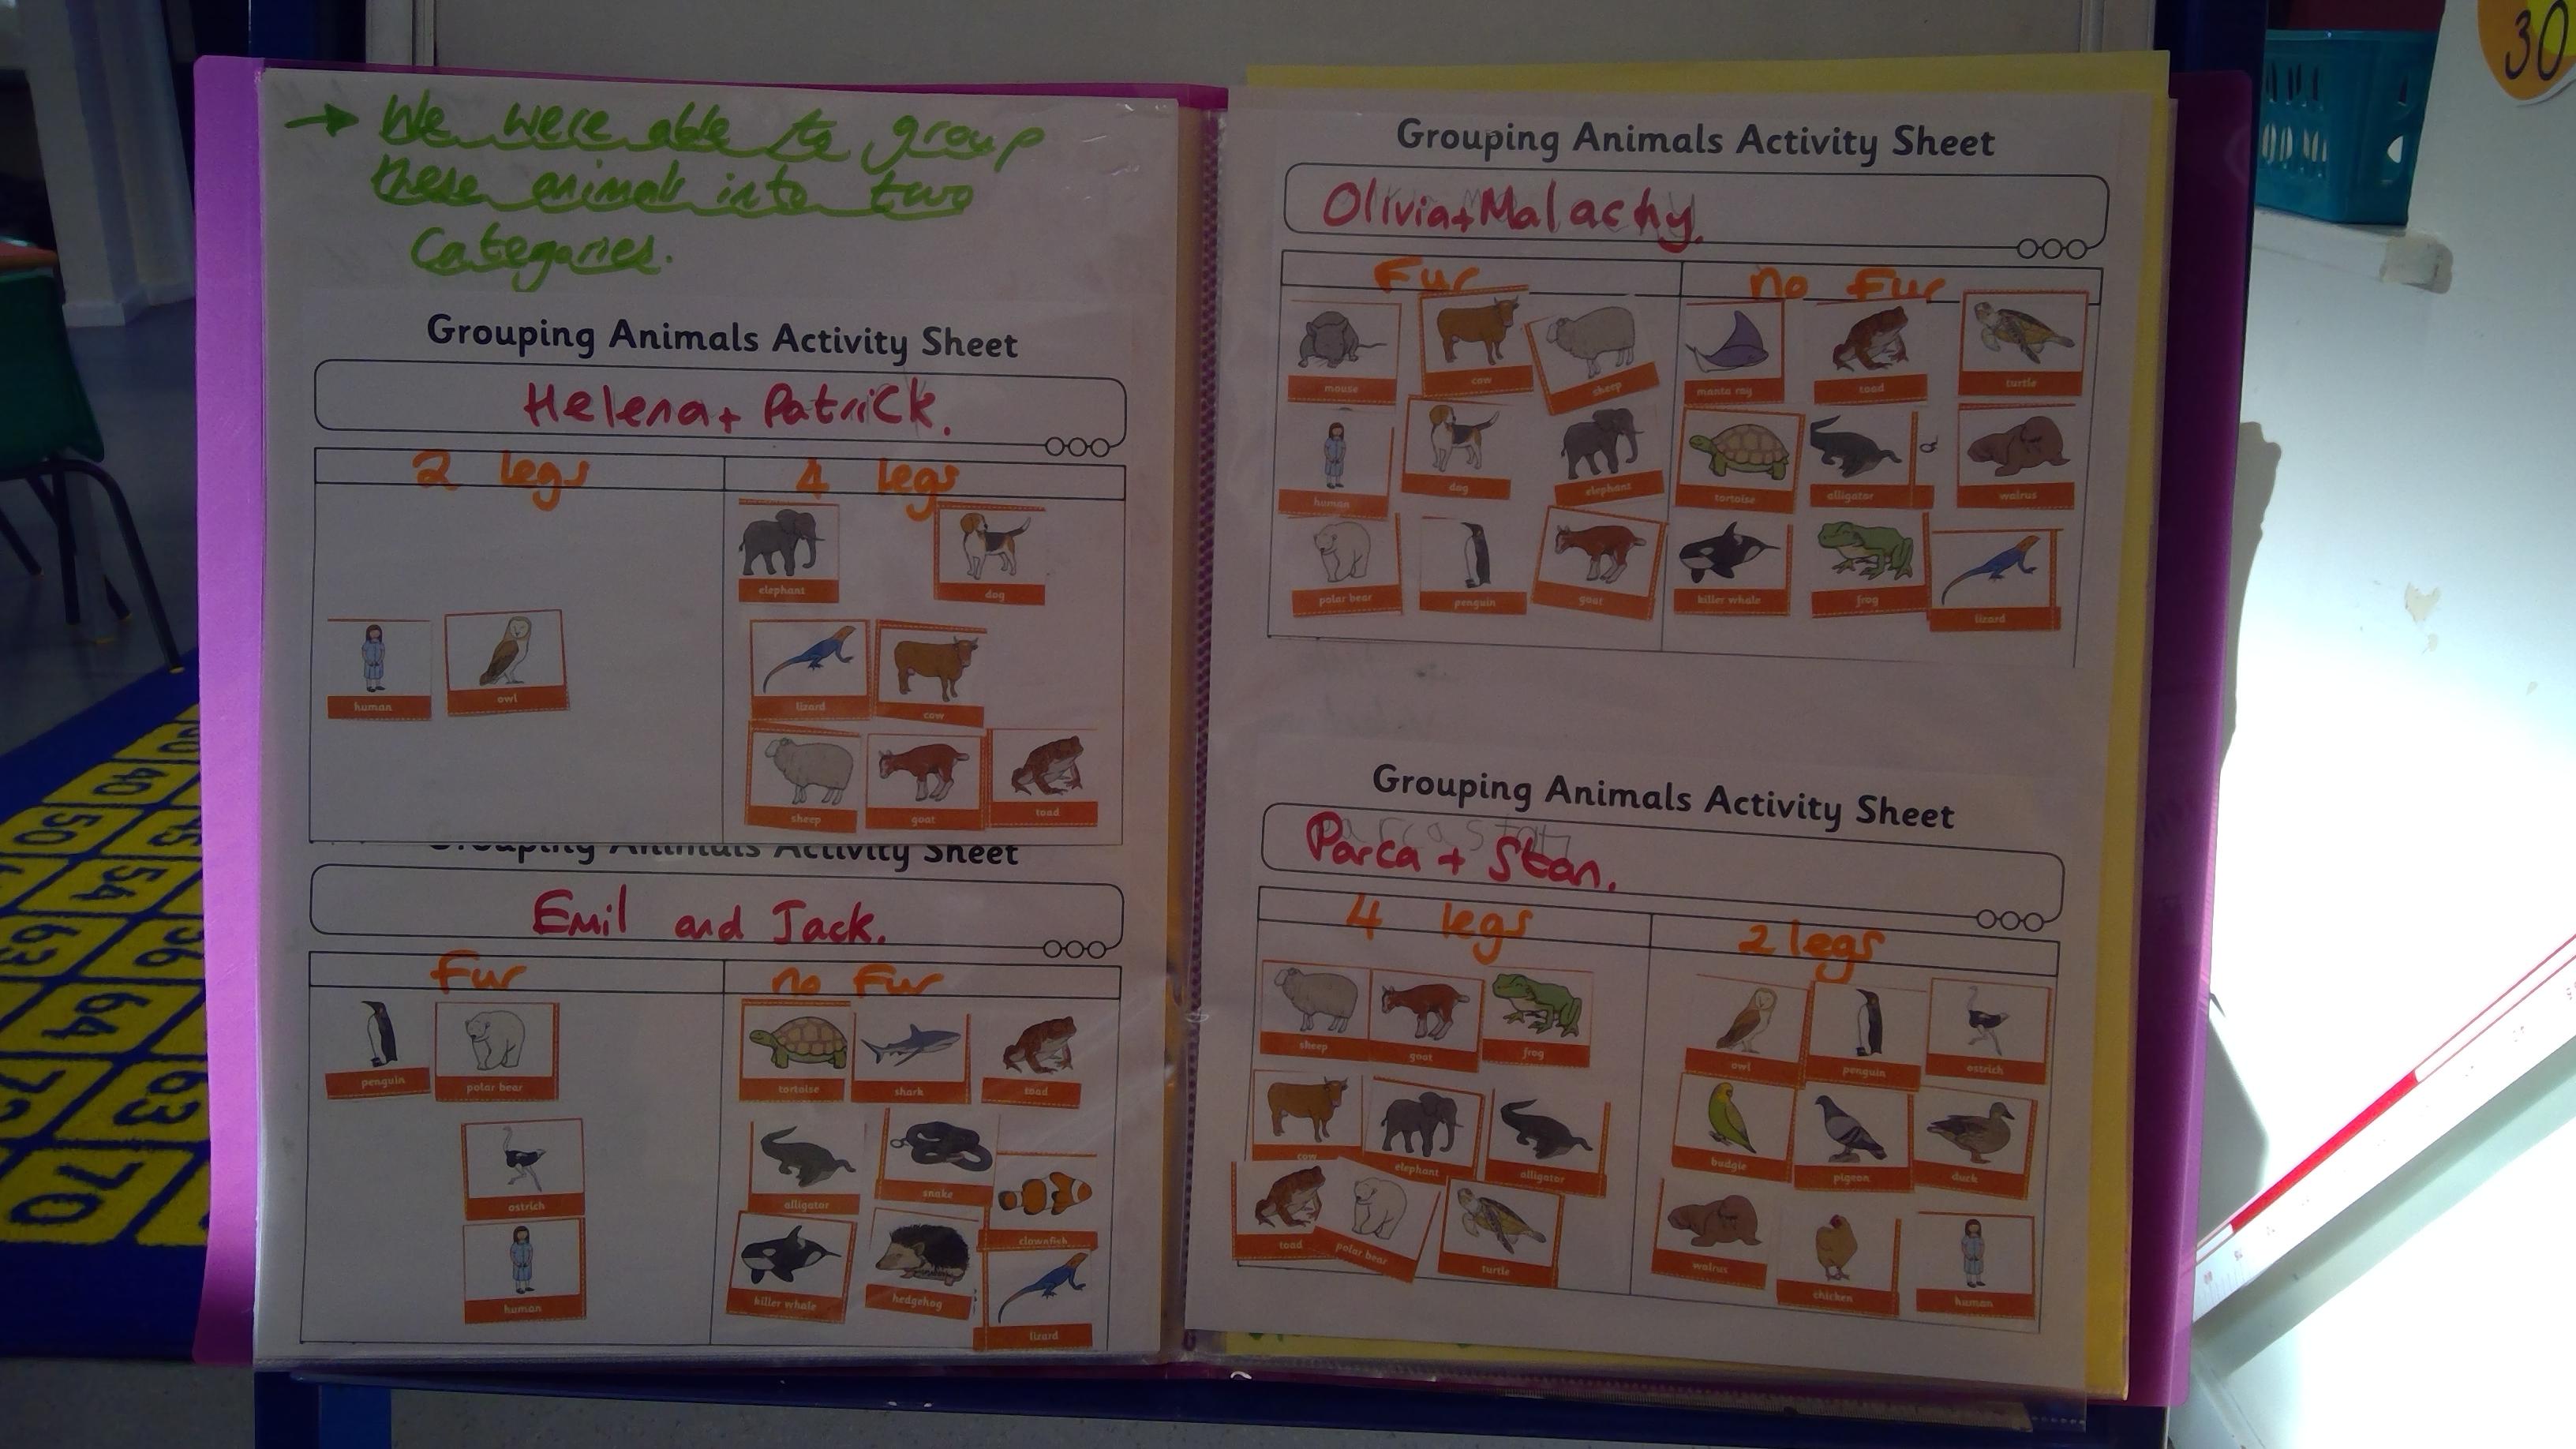 → We were able to group
these animals into two
Categories.
Grouping Animals Activity Sheet
Helena + Patrick.
2 legs 4 legs
elephant dog
human owl lizard cow
sheep goat toad
Grouping Animals Activity Sheet
Emil and Jack.
Fur no Fur
penguin polar bear tortoise shark toad
ostrich alligator snake
clownfish
human killer whale hedgehog
lizard
Grouping Animals Activity Sheet
Olivia + Malachy.
Fur no Fur
mouse cow sheep manta ray toad turtle
human dog elephant tortoise alligator walrus
polar bear penguin goat killer whale frog lizard
Grouping Animals Activity Sheet
Parca + Stan.
4 legs 2 legs
sheep goat frog owl penguin ostrich
cow elephant alligator budgie pigeon duck
toad polar bear turtle walrus chicken human
30
40
50 45
54
63 56
64
72 63
70